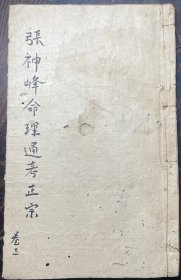 張神峰命理通考正宗
卷三